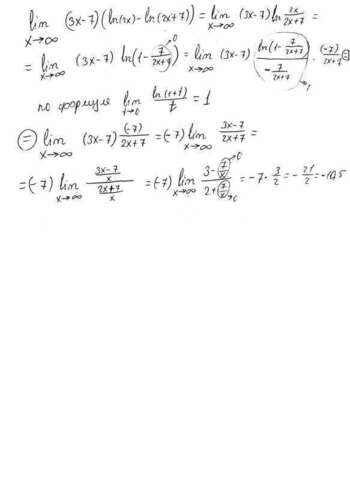 lim x→∞ (3x-7)(ln(2x)-ln(2x+7)) = lim x→∞ (3x-7) ln 2x/(2x+7) =
= lim x→∞ (3x-7) ln(1- 7/(2x+7) →0) = lim x→∞ (3x-7) ln(1- 7/(2x+7))/(- 7/(2x+7)) →1 · (-7)/(2x+7) =
по формуле lim t→0 ln(1+t)/t = 1
= lim x→∞ (3x-7) (-7)/(2x+7) = (-7) lim x→∞ (3x-7)/(2x+7) =
= (-7) lim x→∞ ((3x-7)/x)/((2x+7)/x) = (-7) lim x→∞ (3-(7/x)→0)/(2+(7/x)→0) = -7 · 3/2 = - 21/2 = -10,5